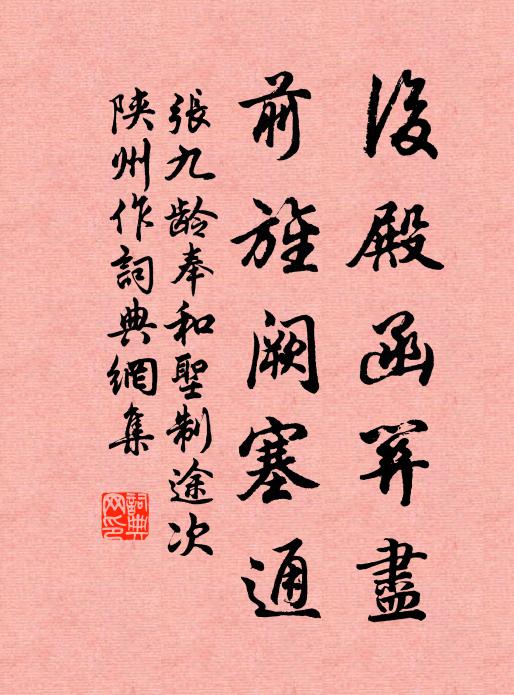 後殿函關盡
前旌闕塞通
張九龄奉和聖制途次
陝州作詞典網集
詞典網印